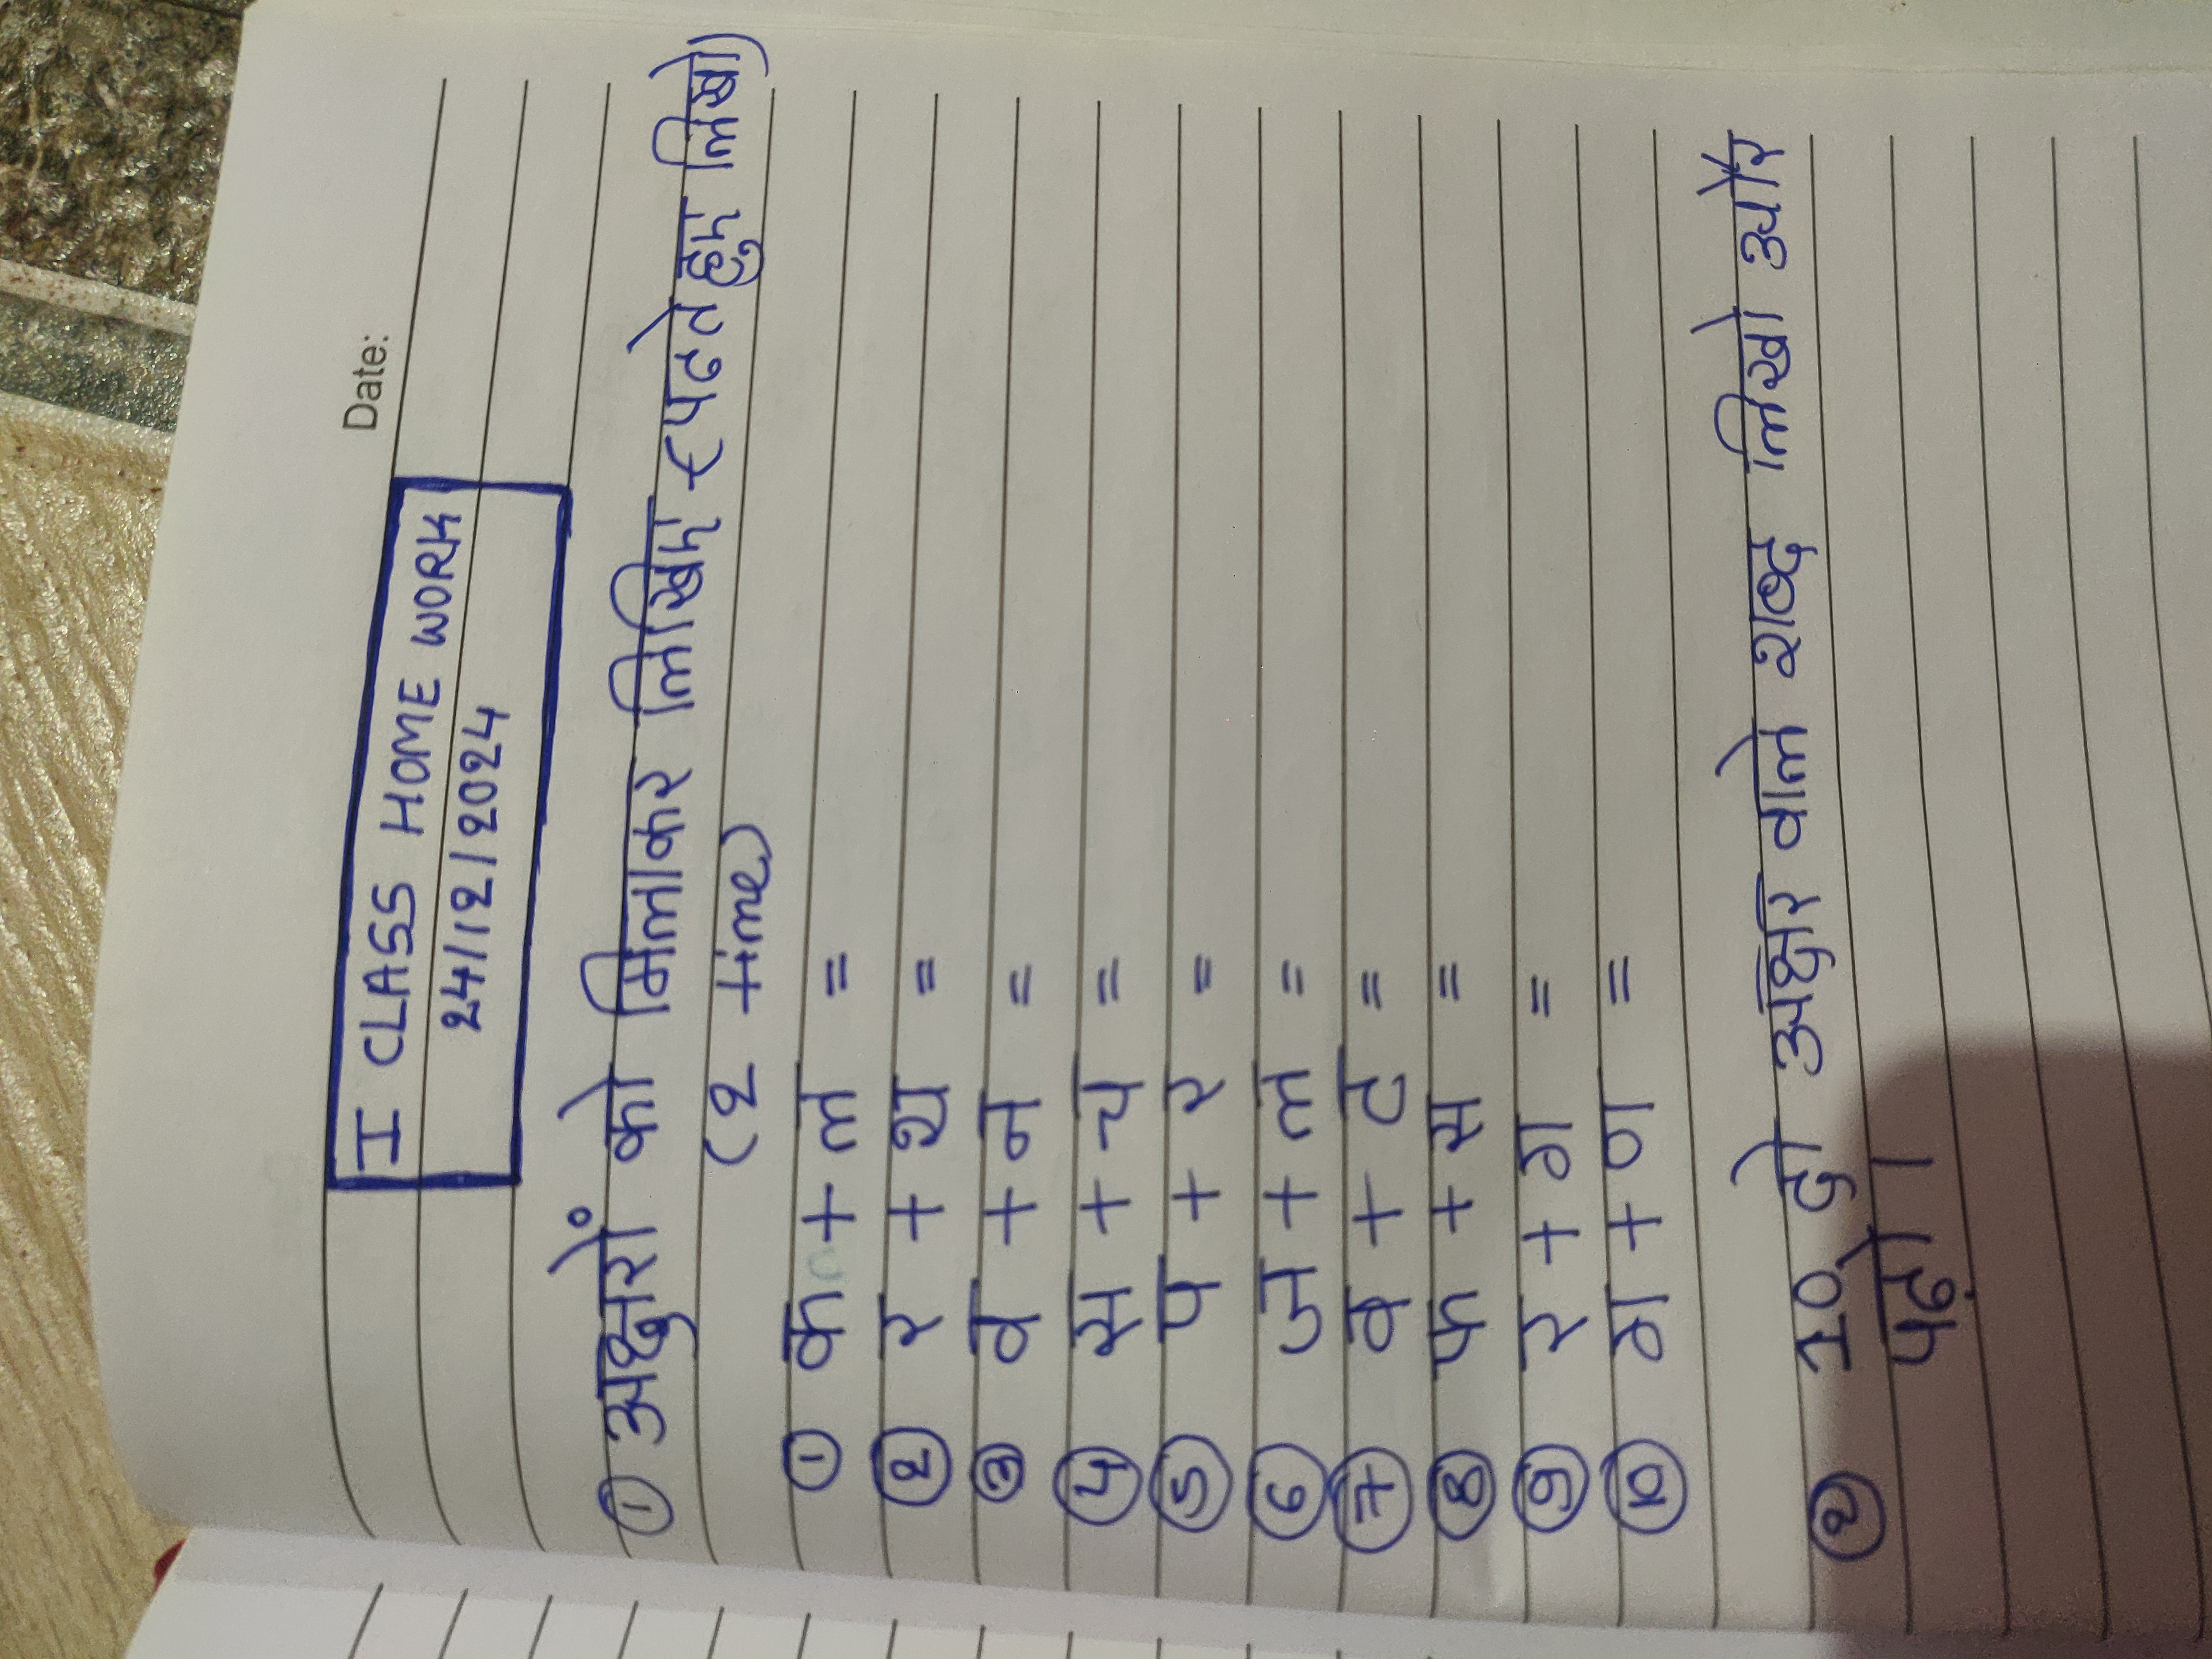 Date:
I CLASS HOME WORK
24/12/2024
① अक्षरों को मिलाकर लिखिए (पढते हुए लिखे)
(2 time)
① क + ल =
② र + थ =
③ व + न =
④ स + च =
⑤ प + र =
⑥ ज + ल =
⑦ व + ट =
⑧ फ + स =
⑨ र + ग =
⑩ ग + ण =
② 10 दो अक्षर वाले शब्द लिखो और
पढ़ो।